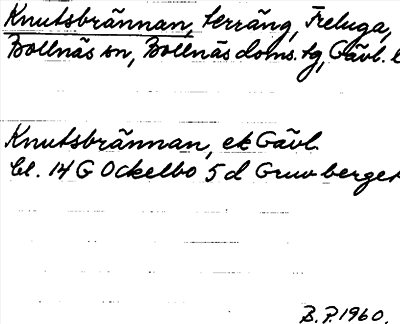 Knutsbrännan, terräng, Freluga,
Bollnäs sn, Bollnäs doms.tg, Gävl. l
Knutsbrännan, ek Gävl.
bl. 14 G Ockelbo 5 d Gruvberget
B.P. 1960.